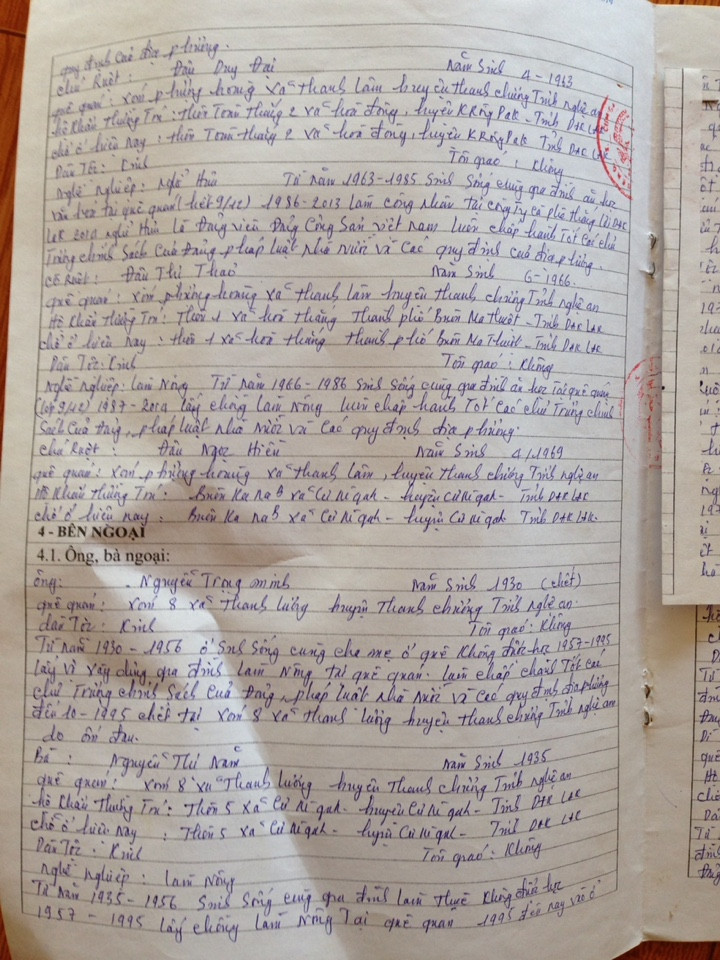 quy định của địa phương.
chú Ruột : Đậu Duy Đại Năm Sinh 4 - 1963
quê quán : xóm phượng hoàng xã thanh Lâm huyện thanh chương Tỉnh nghệ an
hộ khẩu thường Trú : thôn Toàn thắng 2 xã hoà đông, huyện KRông PăK - Tỉnh ĐăK LăK
chổ ở hiện nay : thôn Toàn thắng 2 xã hoà đông, huyện KRông PăK Tỉnh ĐăK LăK
Dân Tộc : Kinh Tôn giáo : Không
Nghề Nghiệp : Nghỉ Hưu Từ năm 1963 - 1985 Sinh Sống cùng gia đình ăn học
văn hoá tại quê quán (hết 9/12) 1986 - 2013 làm công nhân tại công ty cà phê thắng lợi ĐăK
LăK 2014 nghỉ Hưu Là Đảng viên Đảng Cộng Sản việt nam luôn chấp hành Tốt Các chủ
Trương chính Sách Của Đảng, pháp luật Nhà Nước và Các quy định của địa phương.
Cô Ruột : Đậu Thị Thao Năm Sinh 6 - 1966.
quê quán : xóm phượng hoàng xã thanh Lâm huyện thanh chương Tỉnh nghệ an
Hộ Khẩu thường Trú : Thôn 1 xã hoà thắng Thành phố Buôn Ma Thuột - Tỉnh ĐăK LăK
chổ ở hiện nay : thôn 1 xã hoà thắng thành phố Buôn Ma Thuột - Tỉnh ĐăK LăK
Dân Tộc : Kinh Tôn giáo : Không
Nghề Nghiệp : Làm Nông Từ năm 1966 - 1986 Sinh Sống cùng gia đình ăn học Tại quê quán
(lớp 9/12) 1987 - 2014 lấy chồng làm Nông luôn chấp hành Tốt Các chủ Trương chính
Sách Của Đảng, pháp luật Nhà Nước và Các quy định địa phương.
chú Ruột : Đậu Ngọc Hiền Năm Sinh 4/1969
quê quán : xóm phượng hoàng xã thanh Lâm, huyện thanh chương Tỉnh nghệ an
Hộ Khẩu thường Trú : Buôn Ka Na B xã Cư M'gah - huyện Cư M'gah - Tỉnh ĐăK LăK
chổ ở hiện nay : Buôn Ka Na B xã Cư M'gah - huyện Cư M'gah Tỉnh ĐăK LăK.
4 - BÊN NGOẠI
4.1. Ông, bà ngoại:
ông: Nguyễn Trọng minh Năm Sinh 1930 (chết)
quê quán : xóm 8 xã Thanh Lương huyện Thanh chương Tỉnh nghệ an.
dân Tộc : Kinh Tôn giáo : Không
Từ năm 1930 - 1956 ở Sinh Sống cùng cha mẹ ở quê Không được học 1957 - 1995
lấy vợ xây dựng gia đình Làm Nông tại quê quán. chấp hành Tốt Các
chủ Trương chính Sách Của Đảng, pháp luật Nhà Nước và Các quy định địa phương
đến 10 - 1995 chết tại xóm 8 xã thanh Lương huyện thanh chương Tỉnh nghệ an
do ốm đau.
Bà : Nguyễn Thị Năm Năm Sinh 1935
quê quán : xóm 8 xã Thanh Lương huyện Thanh chương Tỉnh nghệ an
hộ khẩu Thường Trú : Thôn 5 xã Cư M'gah - huyện Cư M'gah - Tỉnh ĐăK LăK
chổ ở hiện nay : Thôn 5 xã Cư M'gah - huyện Cư M'gah - Tỉnh ĐăK LăK
Dân Tộc : Kinh Tôn giáo : Không
Nghề nghiệp : Làm Nông
Từ Năm 1935 - 1956 Sinh Sống cùng gia đình Làm Không được học
1957 - 1995 lấy chồng Làm Nông Tại quê quán 1995 đến nay vào ở